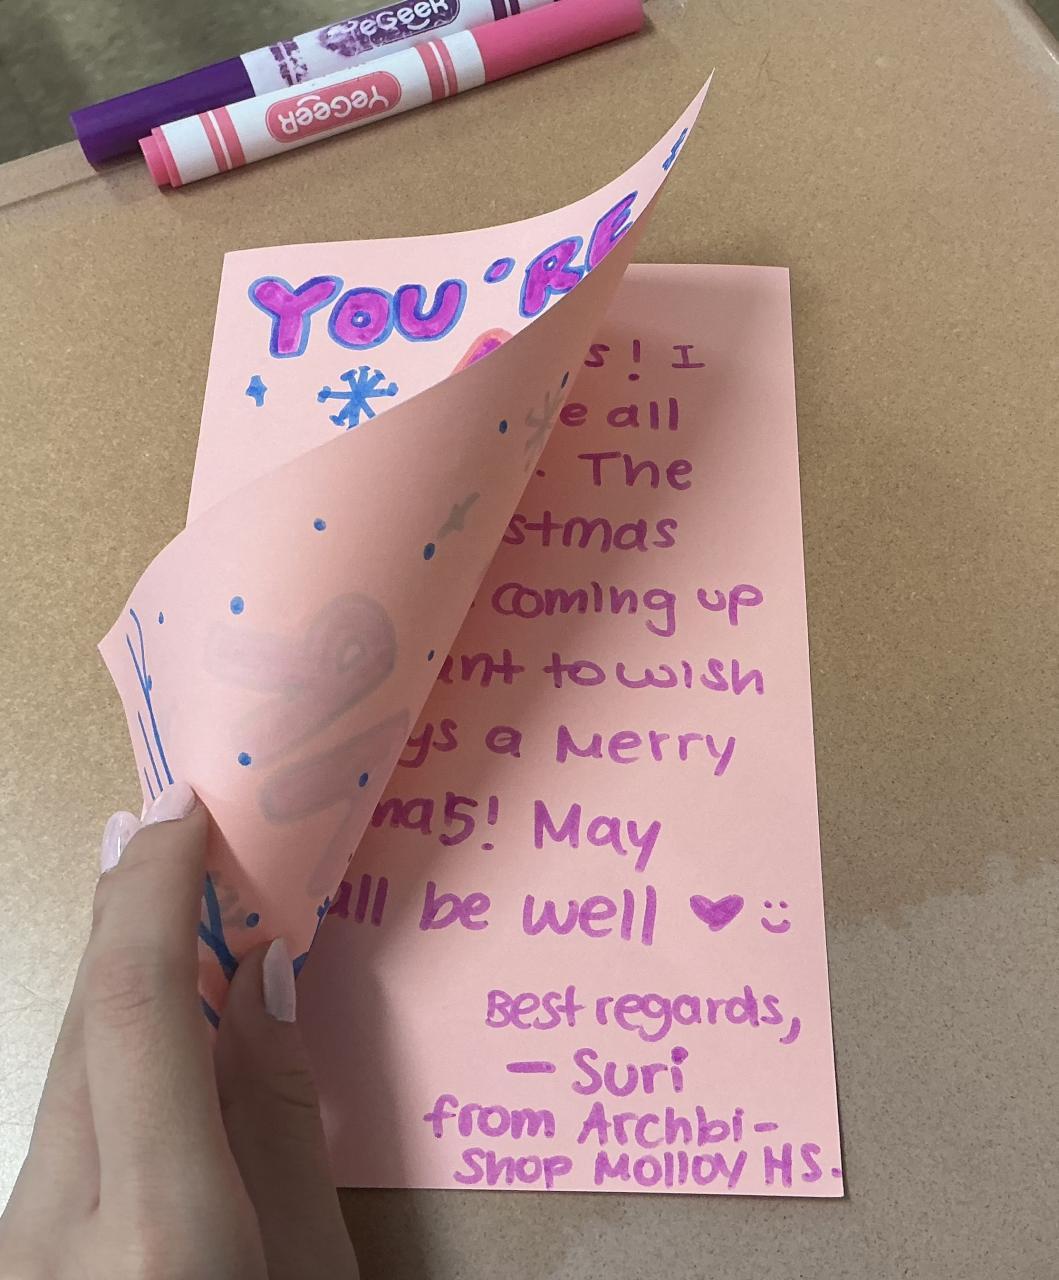 YeGeeR
YeGeeR
YOU'RE
s! I
e all
. The
stmas
coming up
ant to wish
ys a Merry
ma5! May
all be well
Best regards,
- Suri
from Archbi-
shop Molloy HS.